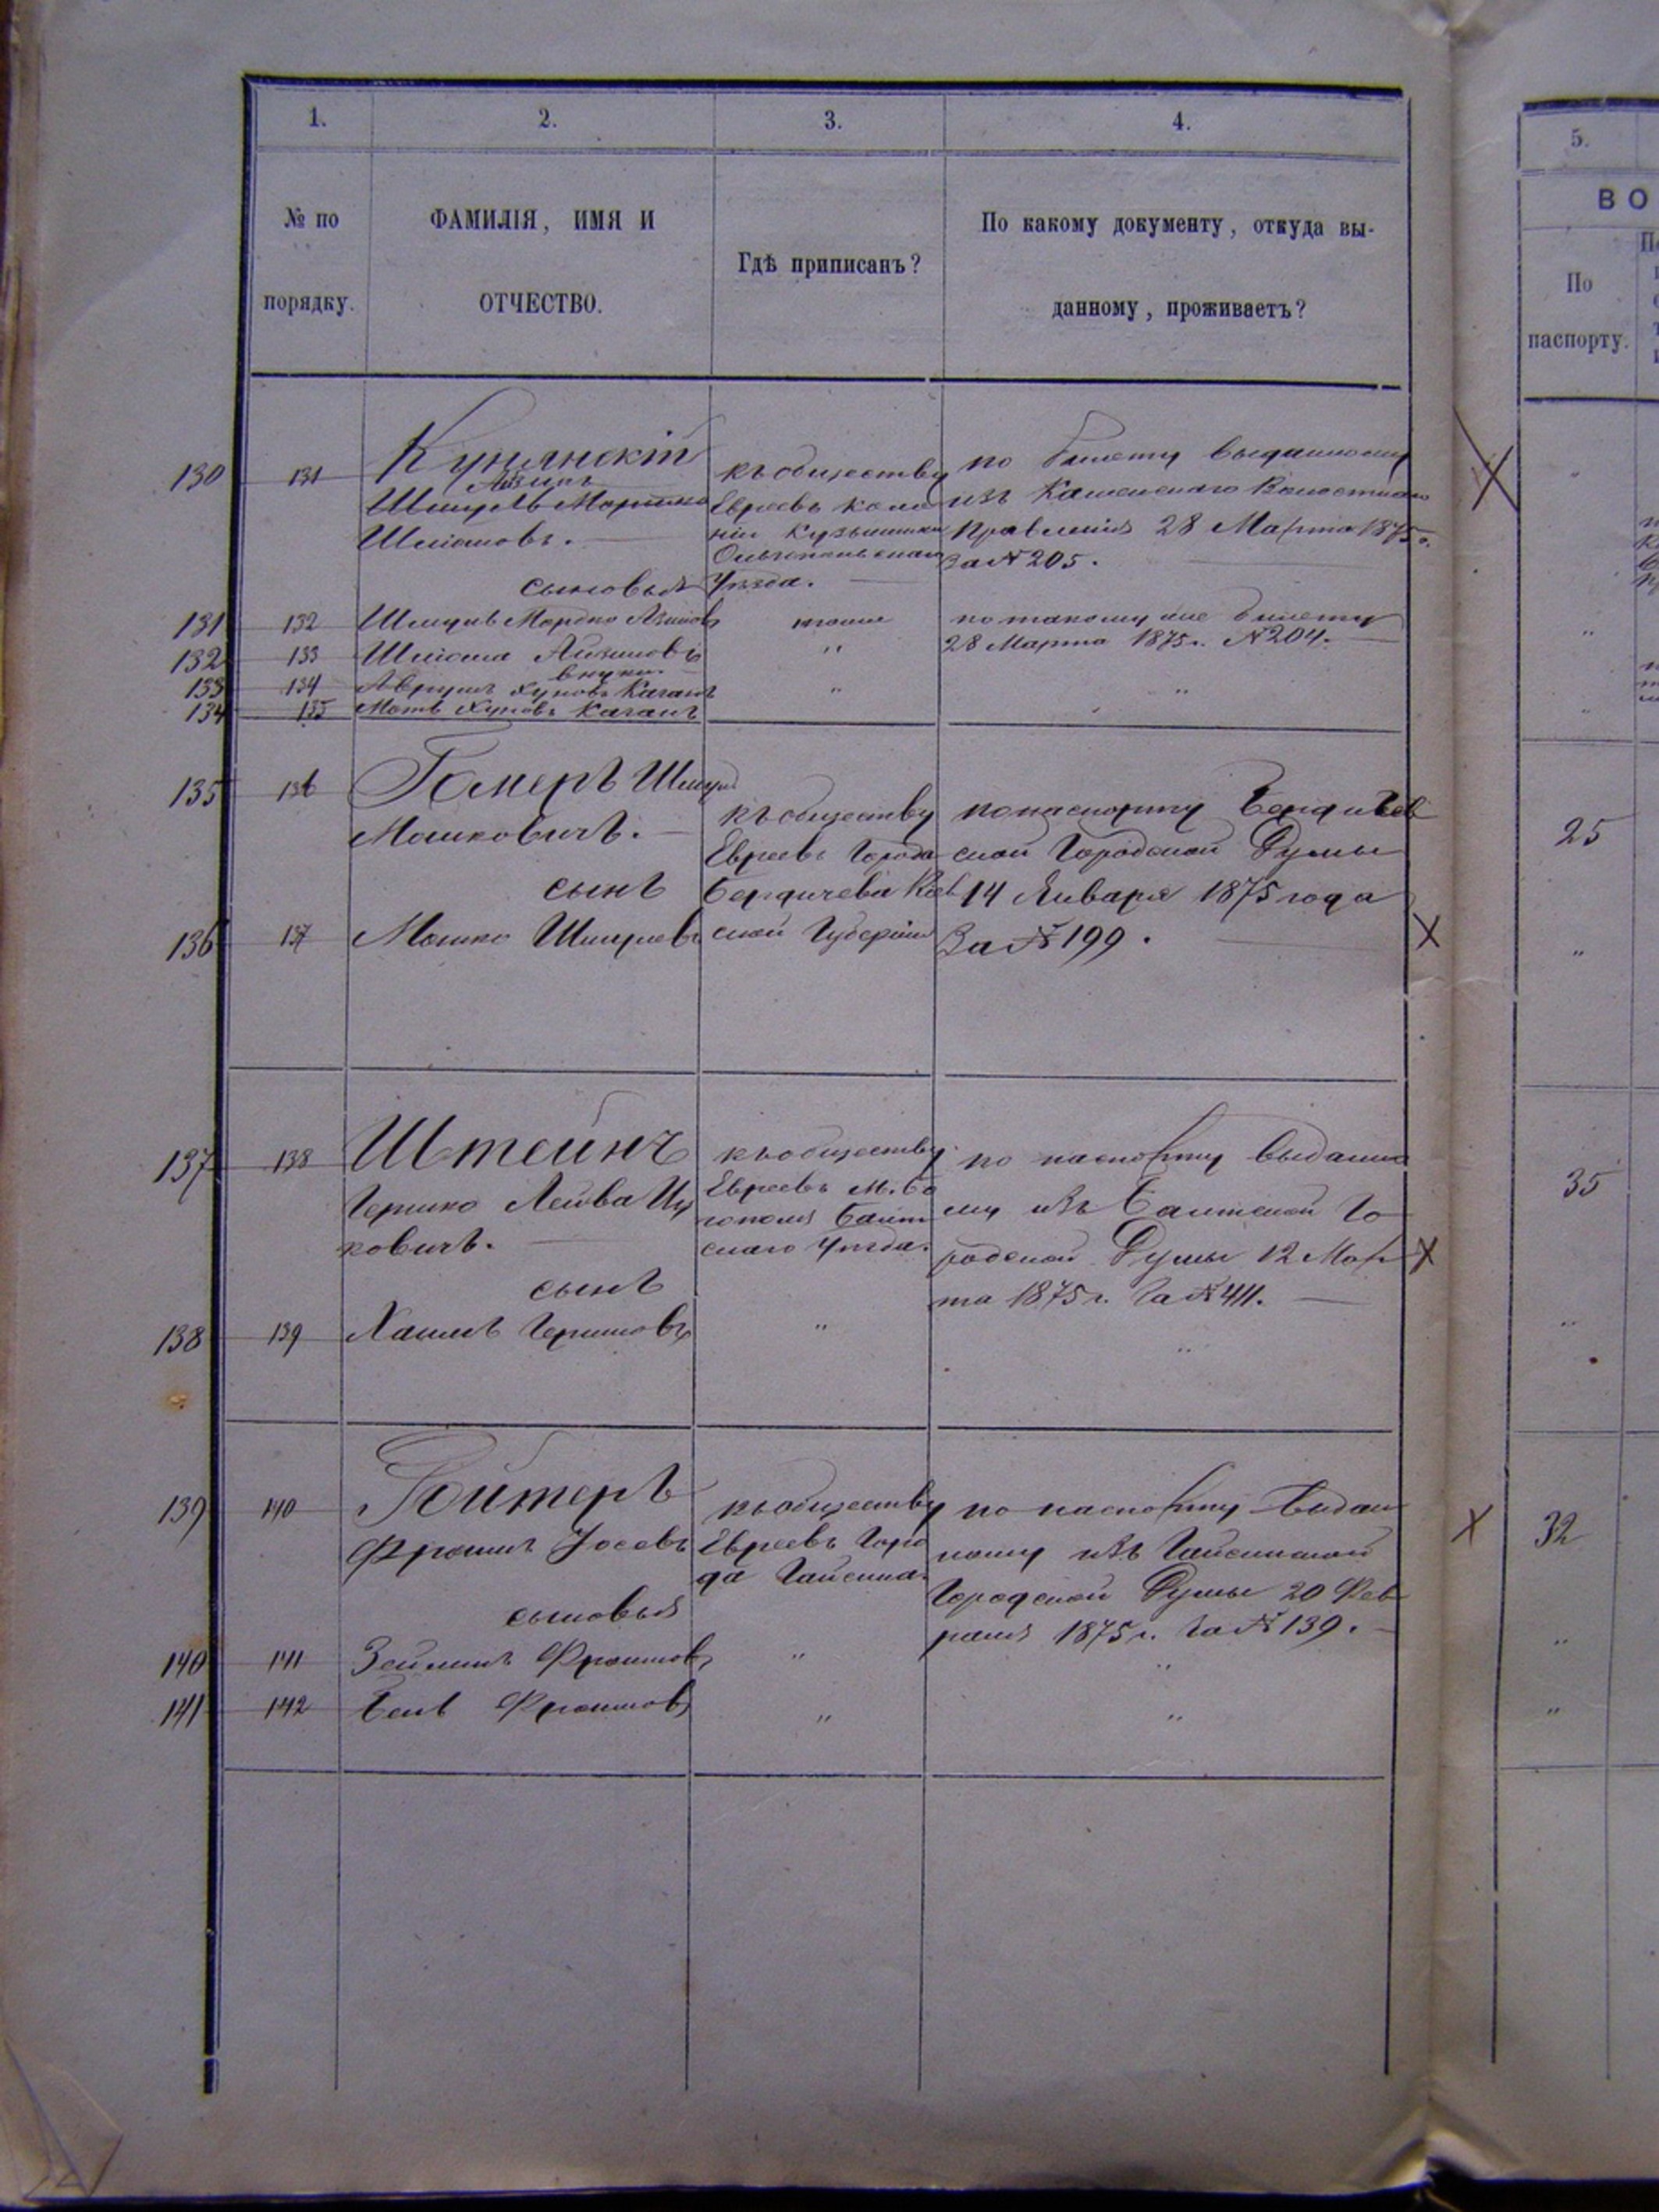 1. 2. 3. 4.
№ по порядку.
ФАМИЛІЯ, ИМЯ И
ОТЧЕСТВО.
Гдѣ приписанъ?
По какому документу, откуда вы-
данному, проживаетъ?
5.
ВО
По
паспорту.
130 131 Кунянскій
Шмуль
Шліомовъ.
къ обществу
Евреевъ коло
ніи
уѣзда.
по билету выданному
изъ Каменскаго Волостнаго
Правленія 28 Марта 1875 г.
За № 205.
сыновья
131 132 Шмуль Мордко Айзиковъ
тоже
по такому же билету
28 Марта 1875 г. № 204.
132 133 Шліома "
внуки
133 134 Аврумъ Хуновъ Каганъ " "
134 135 Моть Хуновъ Каганъ
135 136 Гомеръ Шмуль
Мошковичъ.
къ обществу
Евреевъ города
Бердичева Кіев
ской Губерніи
по паспорту Бердичев
ской Городской Думы
14 Января 1875 года
За № 199.
25
сынъ
136 137 Мошко Шмулевъ
"
137 138 Штейнъ
Гершко Лейба Иц
ковичъ.
къ обществу
Евреевъ м. Бо
гополя Балт
скаго уѣзда.
по паспорту выданно
му изъ Балтской Го
родской Думы 12 Мар
та 1875 г. За № 411.
35
сынъ
138 139 Хаимъ Гершковъ " "
139 140 Ройтеръ
Фроимъ Іосевъ
къ обществу
Евреевъ Горо
да Гайсина.
по паспорту выдан
ному изъ Гайсинской
Городской Думы 20 Фев
раля 1875 г. За № 139.
32
сыновья
140 141 Зейлихъ Фроимовъ " "
141 142 Беньʼ Фроимовъ " "